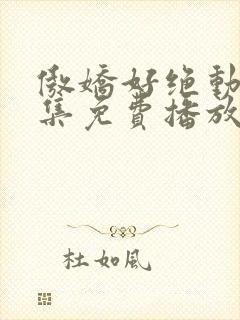 傲嬌好绝動
集免費播放
杜如風